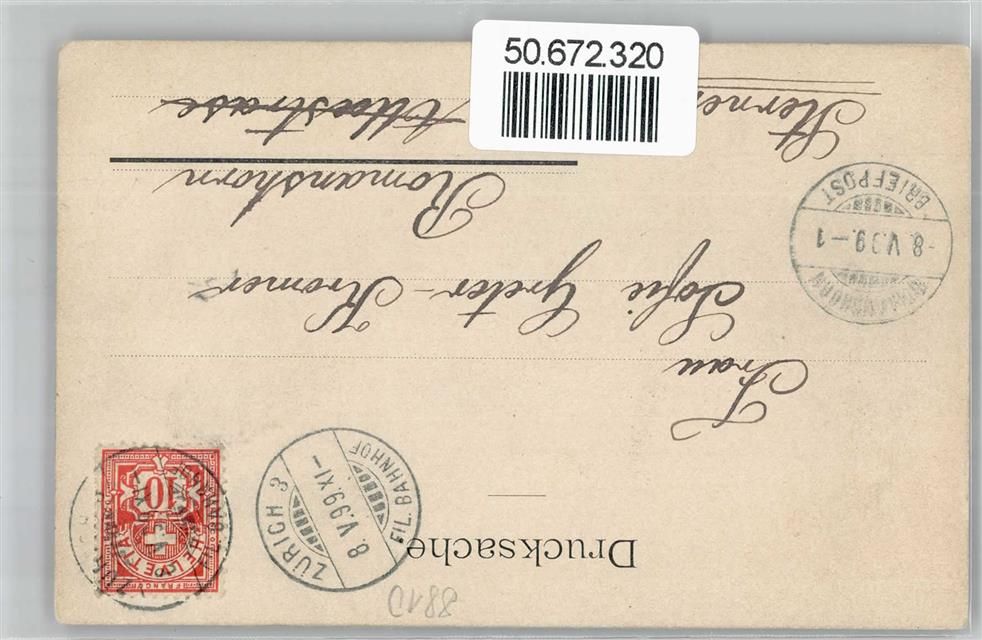 50.672.320
Drucksache
ZÜRICH 3
8.V.99.XI-
FIL. BAHNHOF
10
HELVETIA
FRANCO
Frau
Sofie Greter-Kromer
Romanshorn
ROMANSHORN
-8.V.99.-1
BRIEFPOST
8810